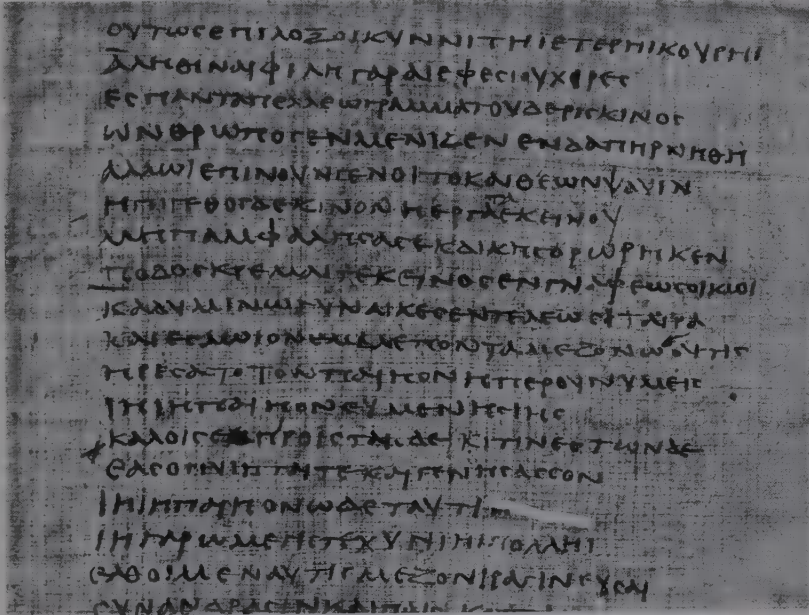 ΟΥΤΩϹΕΠΙΛΟΞΟΙΚΥΝΝΙΤΗΙΕΤΕΡΗΙΚΟΥΡΗΙ
ΑΛΗΘΙΝΑΙΦΙΛΗΓΑΡΑΙΕΦΕϹΙΟΥΧΕΡΕϹ
ΕϹΠΑΝΤΑΠΕΛΛΕΩΓΡΑΜΜΑΤΟΥΔΕΡΙϹΚΙΝΟϹ
ΩΝΘΡΩΠΟϹΕΝΜΕΝΙΔΕΝΕΝΔΑΠΗΡΝΗΘΗ
ΑΛΛΩΙΕΠΙΝΟΥΝΓΕΝΟΙΤΟΚΑΙΘΕΩΝΨΑΥΙΝ
ΗΠΙΓΕΘΟϹΔΕΚΙΝΟΝΗΕΡΓΑΤΑΕΚΕΙΝΟΥ
ΜΗΠΑΜΦΑΛΗϹΑϹΕΚΔΙΚΗϹΟΡΩΡΗΚΕΝ
ΠΟΔΟϹΚΡΕΜΑΙΤΕΚΕΙΝΟϹΕΝΓΝΑΦΕΩϹΟΙΚΩΙ
ΚΑΛΥΜΙΝΩΓΥΝΑΙΚΕϹΕΝΤΕΛΕΩϹΤΑΙΡΑ
ΚΑΙΕϹΛΩΙΟΝΕΜΒΛΕΠΟΝΤΑΜΕΖΟΝΩϹΟΥΤΙϹ
ΗΡΕϹΑΤΟΤΟΝΠΑΙΗΟΝΗΠΕΡΟΥΝΥΜΕΙϹ
ΙΗΙΗΠΑΙΗΟΝΕΥΜΕΝΗϹΙΗϹ
ΚΑΛΟΙϹΕΠΙΡΟΙϹΤΑΙϹΔΕΚΙΤΙΝΕϹΤΩΝΔΕ
ΕΑϹΟΠΥΙΗΤΑΙΤΕΚΑΙΓΕΝΗϹΑϹϹΟΝ
ΙΗΙΗΠΑΙΗΟΝΩΔΕΤΑΥΤΙ
ΙΗΓΑΡΩΜΕΓΙϹΤΕΧΥΓΙΗΙΠΟΛΛΗΙ
ΕΛΘΟΙΜΕΝΑΥΤΙϹΜΕΖΟΝΙΡΑΓΙΝΕΥϹΑΙ
ϹΥΝΑΝΔΡΑϹΙΝΚΑΙΠΑΙϹΙ